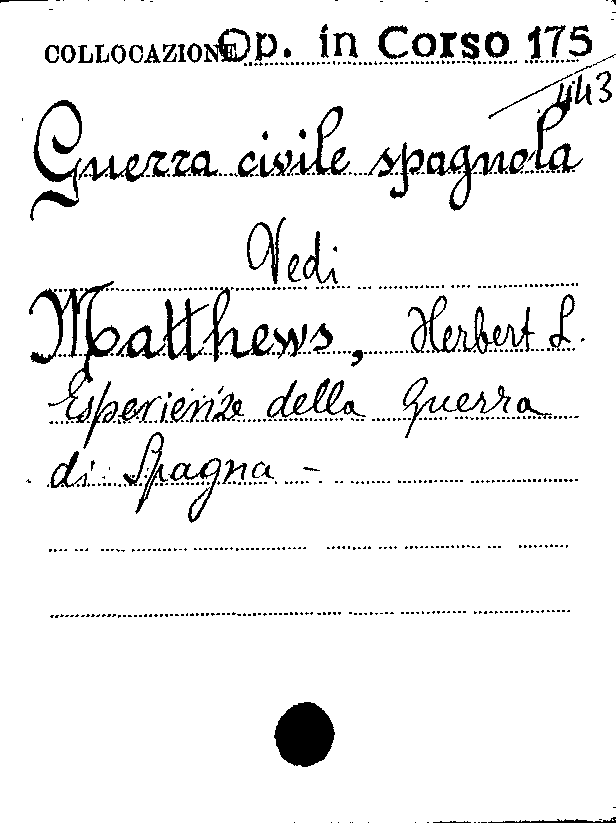 COLLOCAZIONE Op. in Corso 175
443
Guerra civile spagnola
Vedi
Matthews, Herbert L.
Esperienze della guerra
di Spagna -